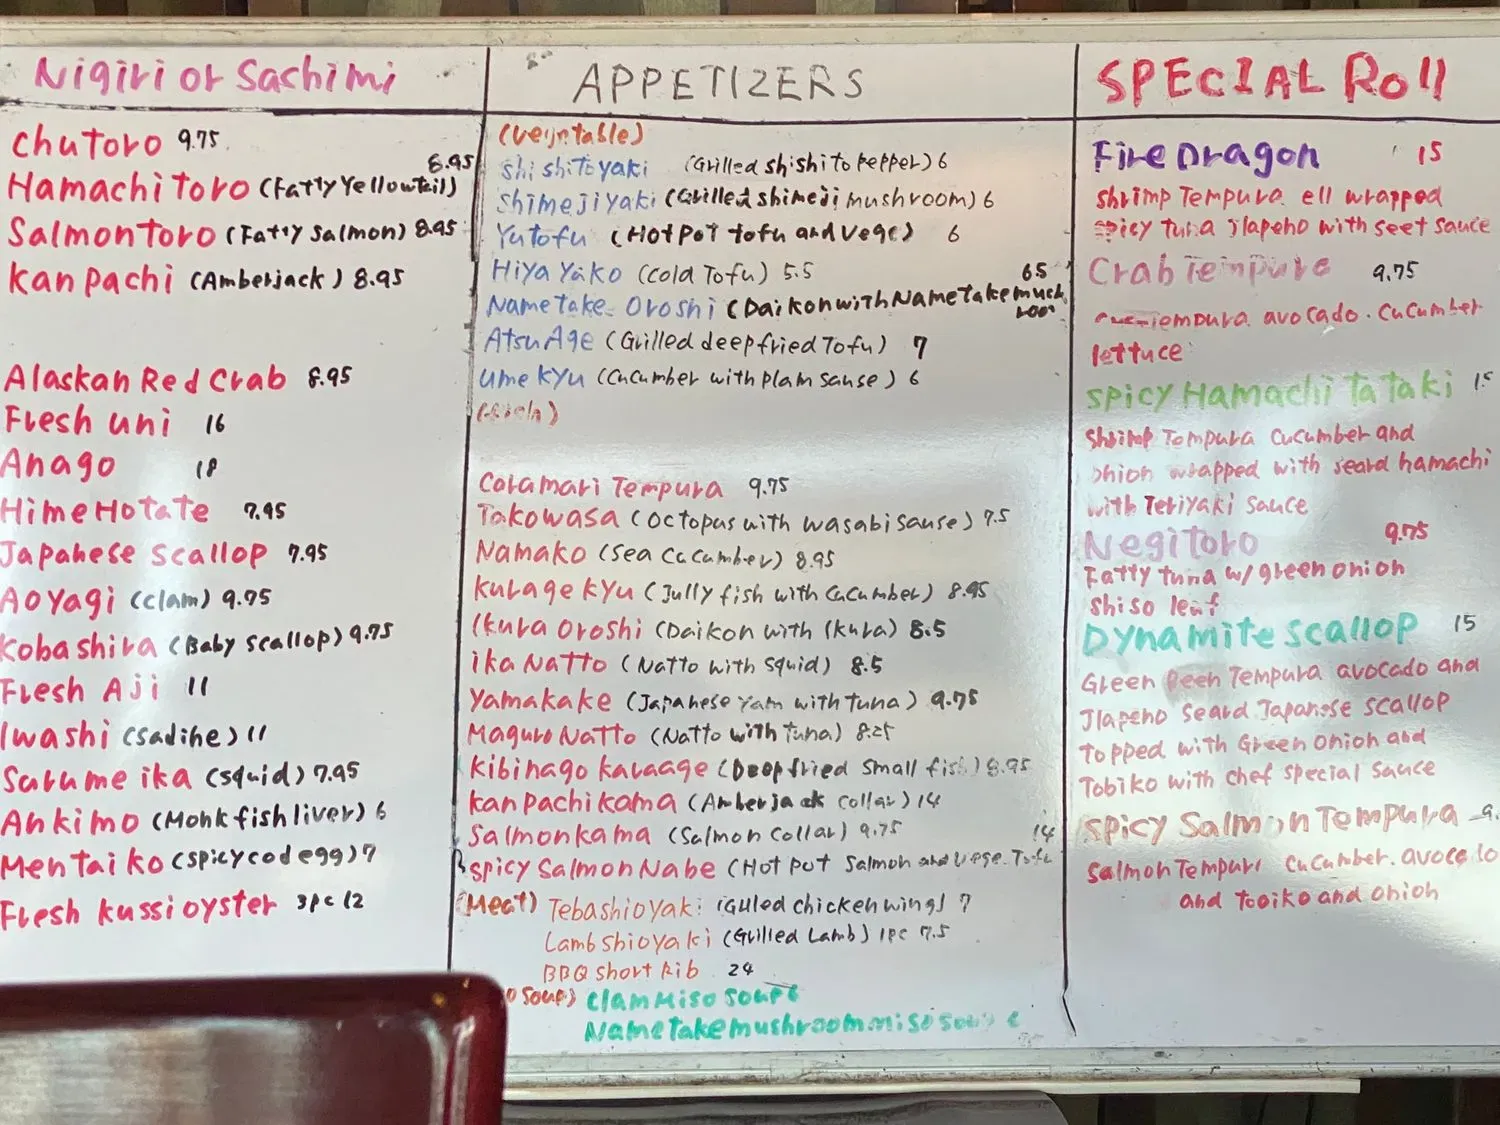 Nigiri or Sashimi
Chutoro 9.75
8.95
Hamachi Toro (Fatty Yellowtail)
Salmon Toro (Fatty Salmon) 8.95
Kanpachi (Amberjack) 8.95
Alaskan Red Crab 8.95
Fresh uni 16
Anago 18
Hime Hotate 7.95
Japanese Scallop 7.95
Aoyagi (clam) 9.75
Kobashira (Baby scallop) 9.75
Fresh Aji 11
Iwashi (Sadine) 11
Surume ika (squid) 7.95
Ankimo (Monkfish liver) 6
Mentaiko (spicy cod egg) 7
Fresh kussi oyster 3pc 12
APPETIZERS
(Vegntable)
Shishito yaki (Grilled shishito pepper) 6
Shimeji yaki (Grilled shimeji mushroom) 6
Yutofu (Hot Pot tofu and Vege) 6
Hiya Yako (Cold Tofu) 5.5
6.5
Nametake Oroshi (Daikon with Nametake mush
room
Atsu Age (Grilled deep fried Tofu) 7
Ume Kyu (Cucumber with plam sause) 6
Coramari Tempura 9.75
Takowasa (Octopus with wasabi sause) 7.5
Namako (Sea Cucumber) 8.95
Kurage Kyu (Jully fish with Cucumber) 8.95
Ikura Oroshi (Daikon with Ikura) 8.5
ika Natto (Natto with Squid) 8.5
Yamakake (Japanese Yam with tuna) 9.75
Maguro Natto (Natto with tuna) 8.25
Kibinago karaage (Deep fried small fish) 8.95
Kanpachi kama (Amberjack collar) 14
Salmon kama (Salmon collar) 9.75
14
Spicy Salmon Nabe (Hot pot Salmon and Vege. Tofu
(Meat) Tebashioyaki (Grilled chicken wing) 7
Lamb shioyaki (Grilled Lamb) 1pc 7.5
BBQ short Rib 24
Soup) Clam Miso Soup 6
Nametake mushroom miso soup 6
SPECIAL Roll
Fire Dragon 15
Shrimp Tempura ell wrapped
spicy tuna Jlapeno with seet sauce
Crab Tempura 9.75
Tempura avocado. Cucumber
lettuce
Spicy Hamachi Tataki
Shrimp Tempura Cucumber and
onion wrapped with seard hamachi
with Teriyaki sauce
Negitoro 9.75
Fatty tuna w/ green onion
shiso leaf
Dynamite Scallop 15
Green Been Tempura avocado and
Jlapeno seard Japanese Scallop
topped with Green onion and
Tobiko with chef special sauce
Spicy Salmon Tempura
Salmon Tempura Cucumber. avocado
and tobiko and onion